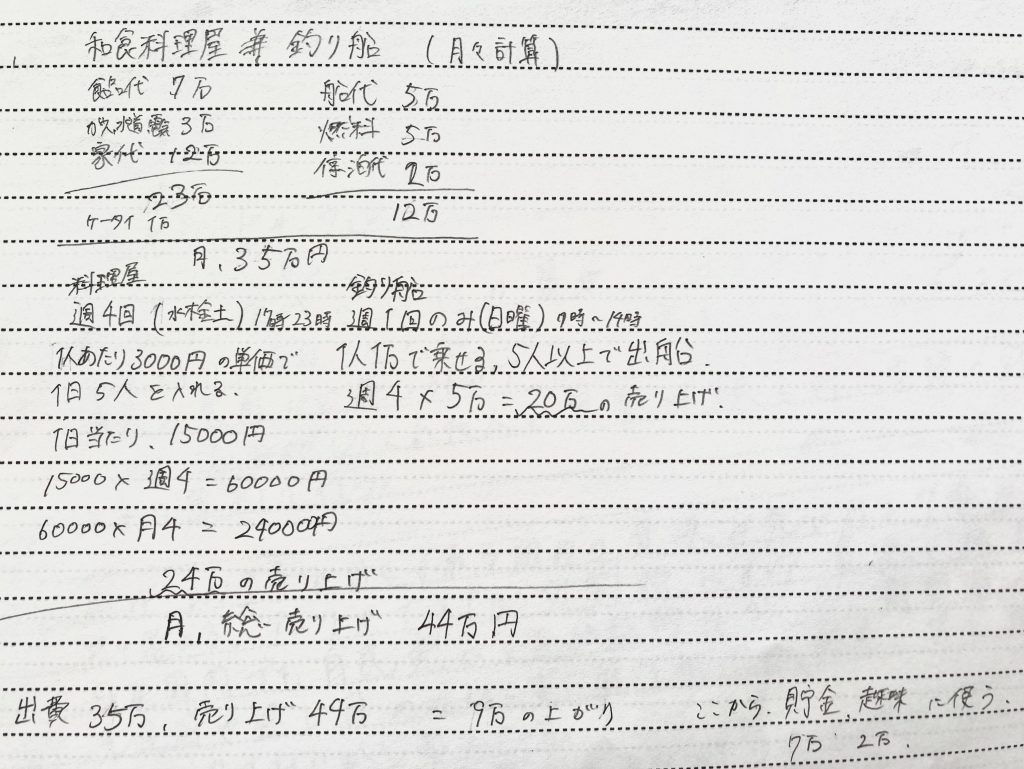 和食料理屋 兼 釣り船 (月々計算)
食品代 7万 船代 5万
ガス水道電気 3万 燃料 5万
家代 12万 停泊代 2万
23万 12万
ケータイ 1万
月, 35万円
料理屋 釣り船
週4回 (水木金土) 17時23時 週1回のみ(日曜) 9時〜14時
1人あたり3000円の単価で 1人1万で乗せる, 5人以上で出船.
1日5人を入れる. 週4×5万=20万の売り上げ.
1日当たり、15000円
15000×週4=60000円
60000×月4=240000円
24万の売り上げ
月, 総売り上げ 44万円
出費 35万, 売り上げ44万 = 9万の上がり ここから、貯金、趣味に使う.
7万 2万.